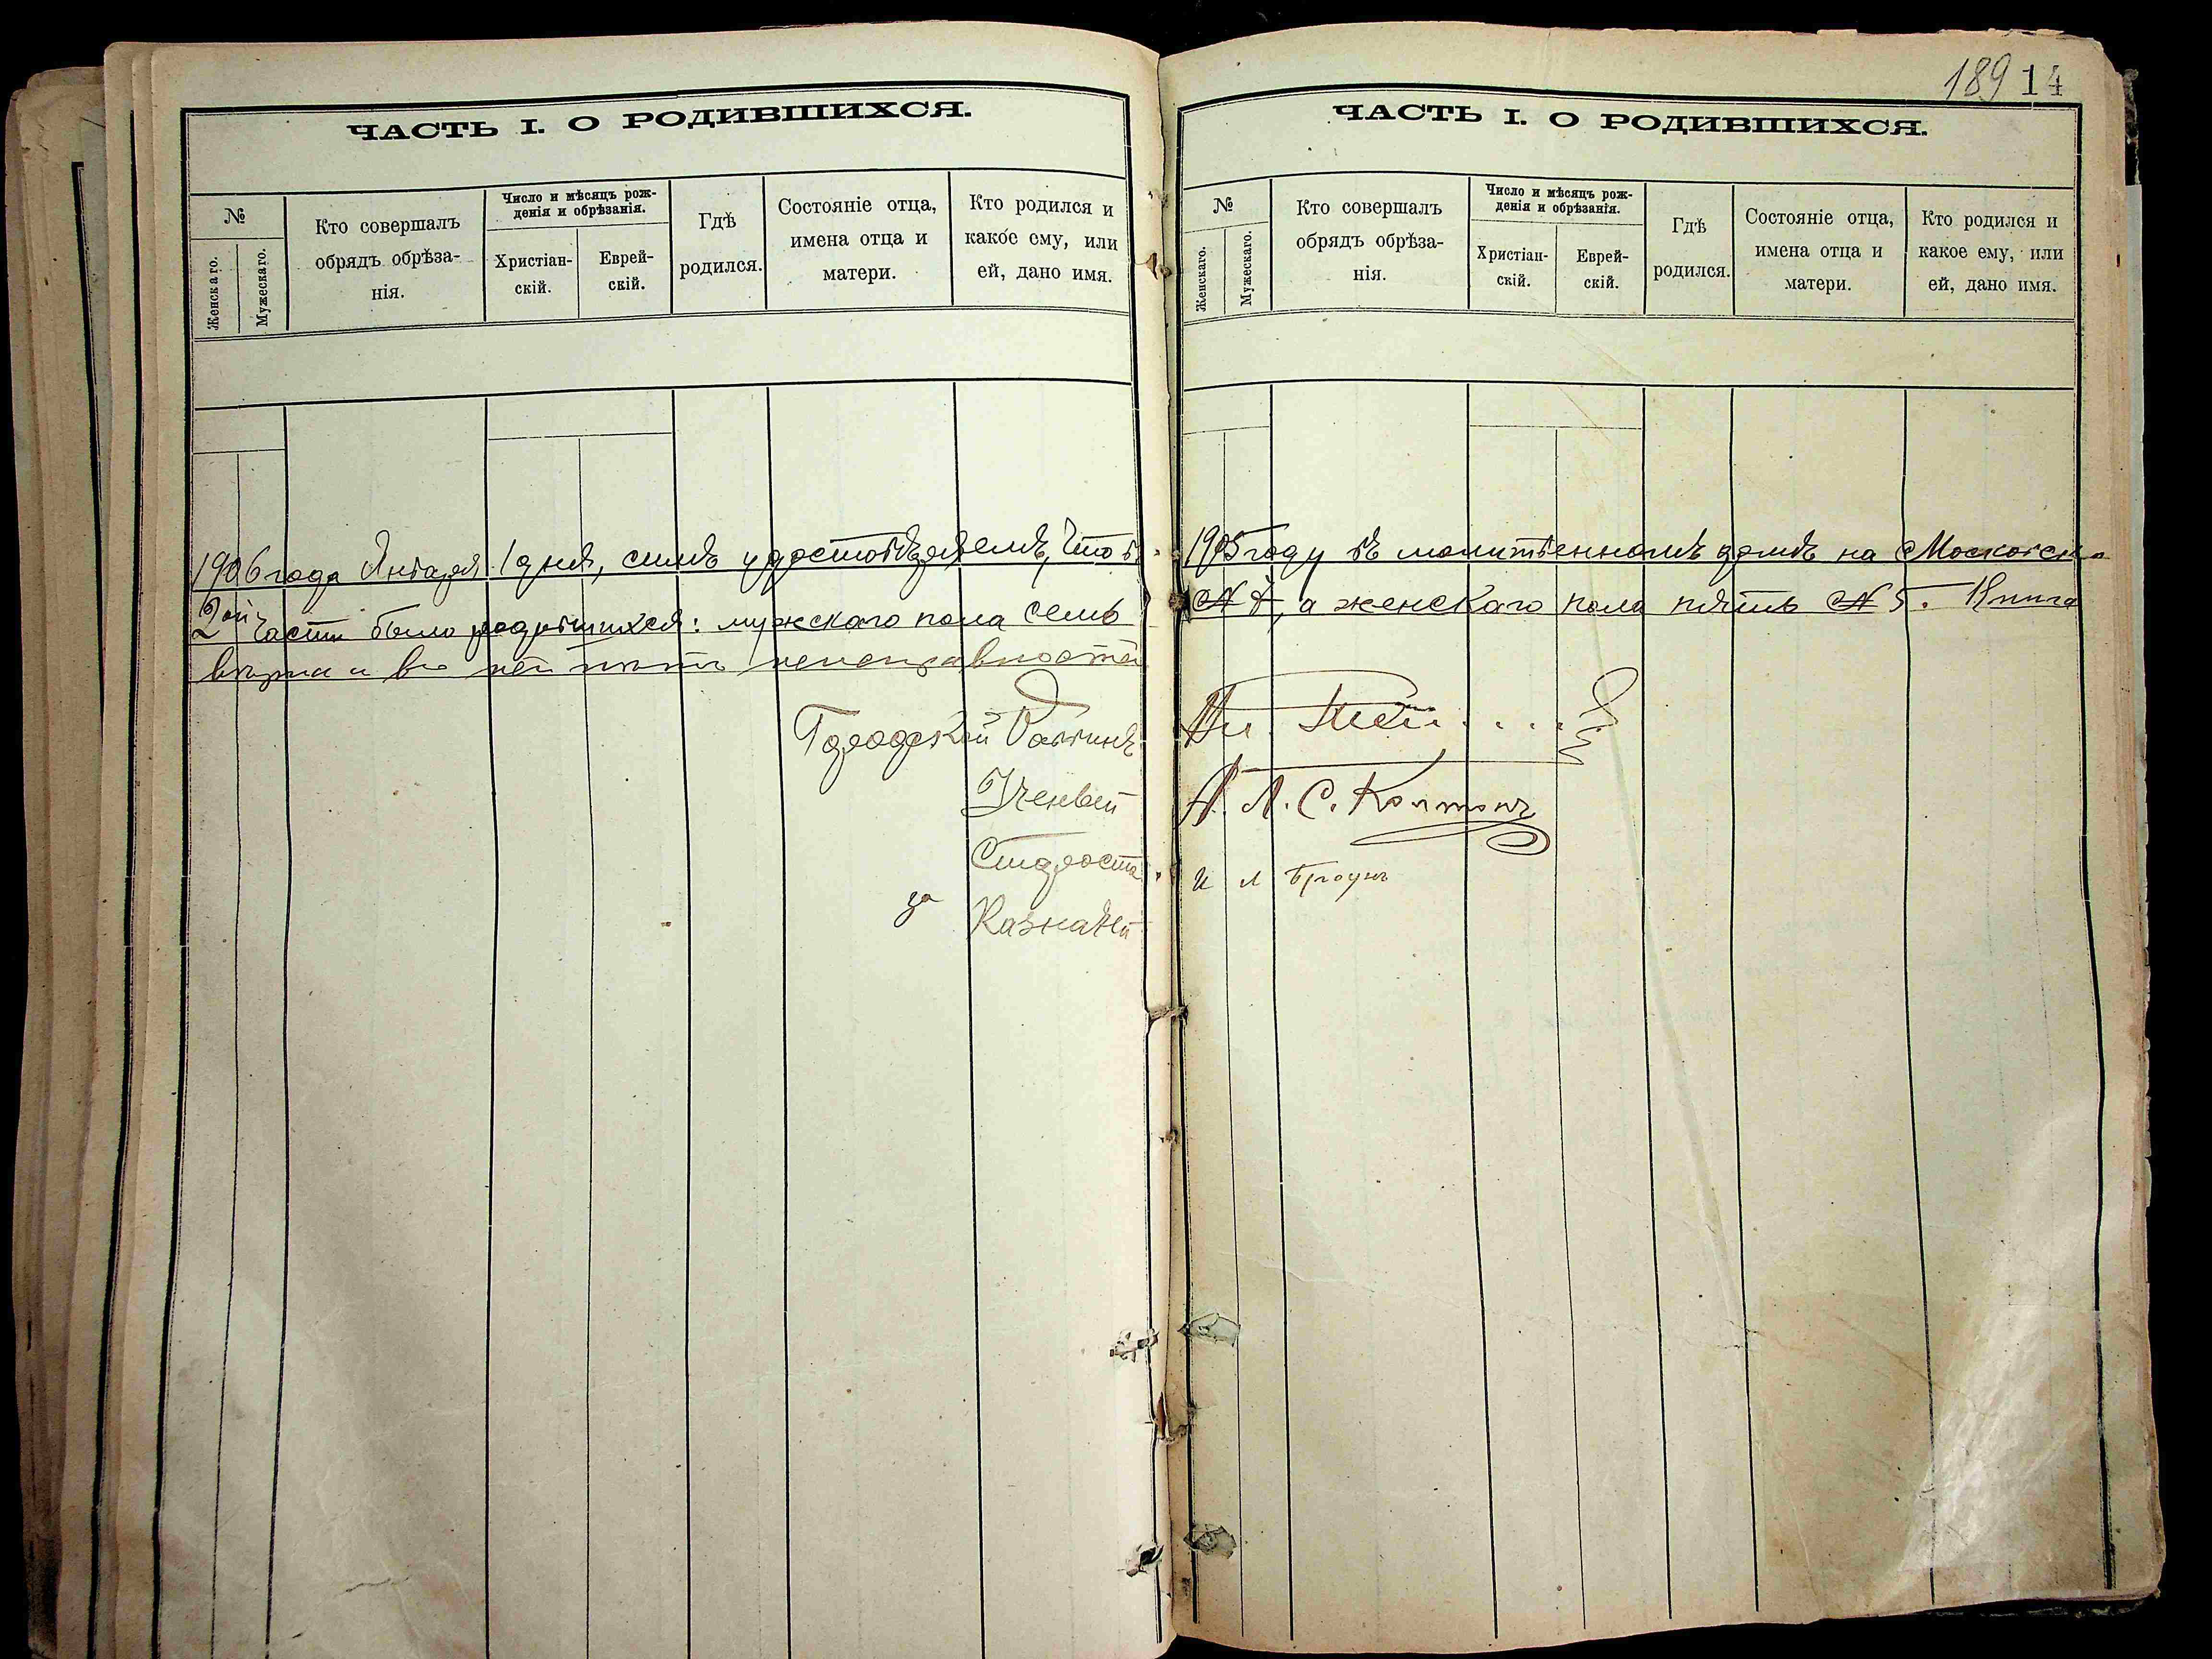 189 14
ЧАСТЬ I. О РОДИВШИХСЯ.
№
Женскаго.
Мужескаго.
Кто совершалъ
обрядъ обрѣза-
нія.
Число и мѣсяцъ рож-
денія и обрѣзанія.
Христіан-
скій.
Еврей-
скій.
Гдѣ
родился.
Состояніе отца,
имена отца и
матери.
Кто родился и
какое ему, или
ей, дано имя.
ЧАСТЬ I. О РОДИВШИХСЯ.
№
Женскаго.
Мужескаго.
Кто совершалъ
обрядъ обрѣза-
нія.
Число и мѣсяцъ рож-
денія и обрѣзанія.
Христіан-
скій.
Еврей-
скій.
Гдѣ
родился.
Состояніе отца,
имена отца и
матери.
Кто родился и
какое ему, или
ей, дано имя.
1906 года Января 1 дня, симъ удостовѣряемъ, что въ 1905 году въ молитвенномъ домѣ на Московск
2ой части было родившихся: мужскаго пола семь № 7, а женскаго пола пять № 5. Книга
вѣрна и въ ней нѣтъ неисправностей
Городской Раввинъ
Ученый А. Л. С. Колтонъ
Староста И Л Браунъ
за Казначей